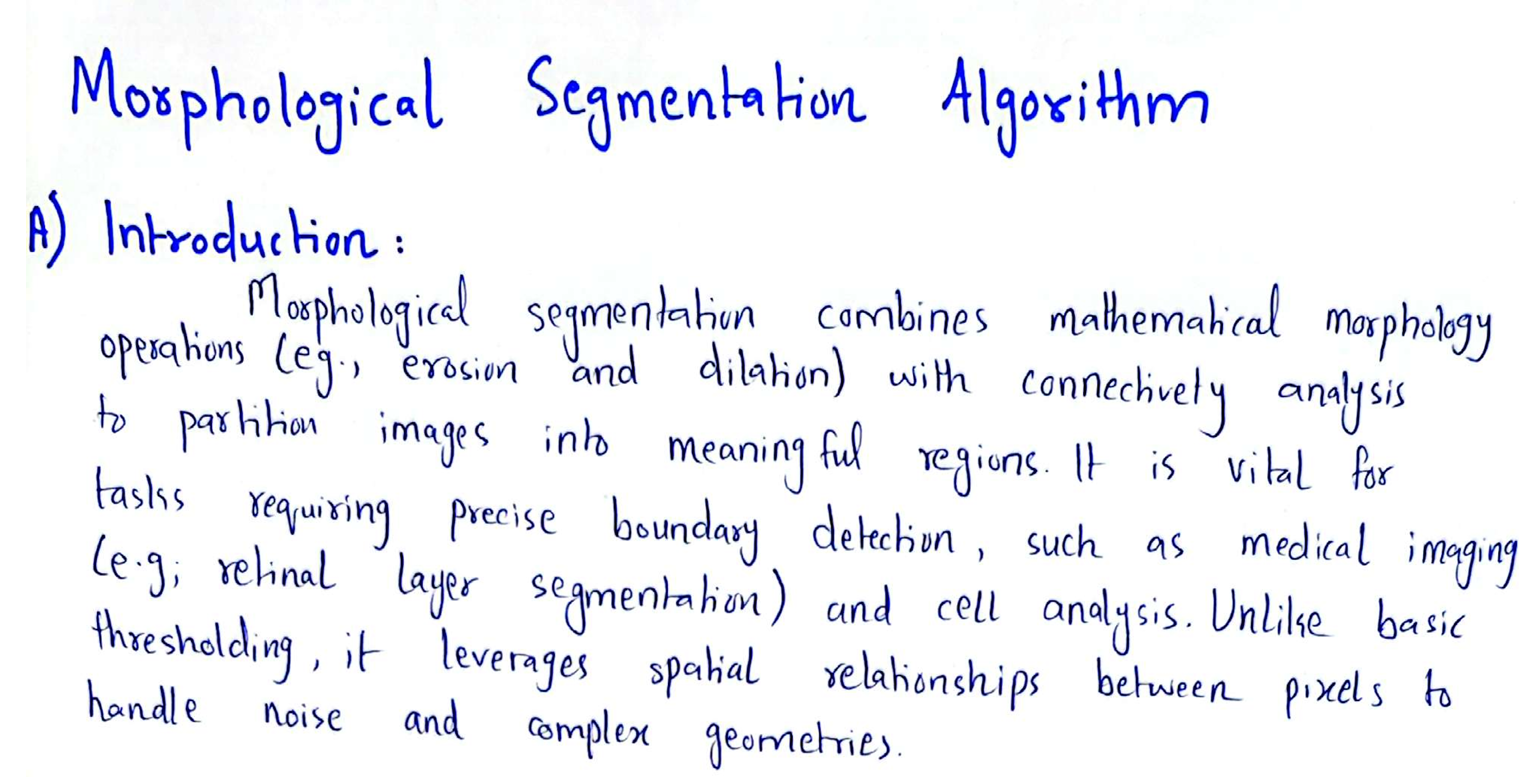 Morphological Segmentation Algorithm
A) Introduction :
Morphological segmentation combines mathematical morphology
operations (eg., erosion and dilation) with connectivety analysis
to partition images into meaningful regions. It is vital for
tasks requiring precise boundary detection, such as medical imaging
(e.g; retinal layer segmentation) and cell analysis. Unlike basic
thresholding, it leverages spatial relationships between pixels to
handle noise and complex geometries.